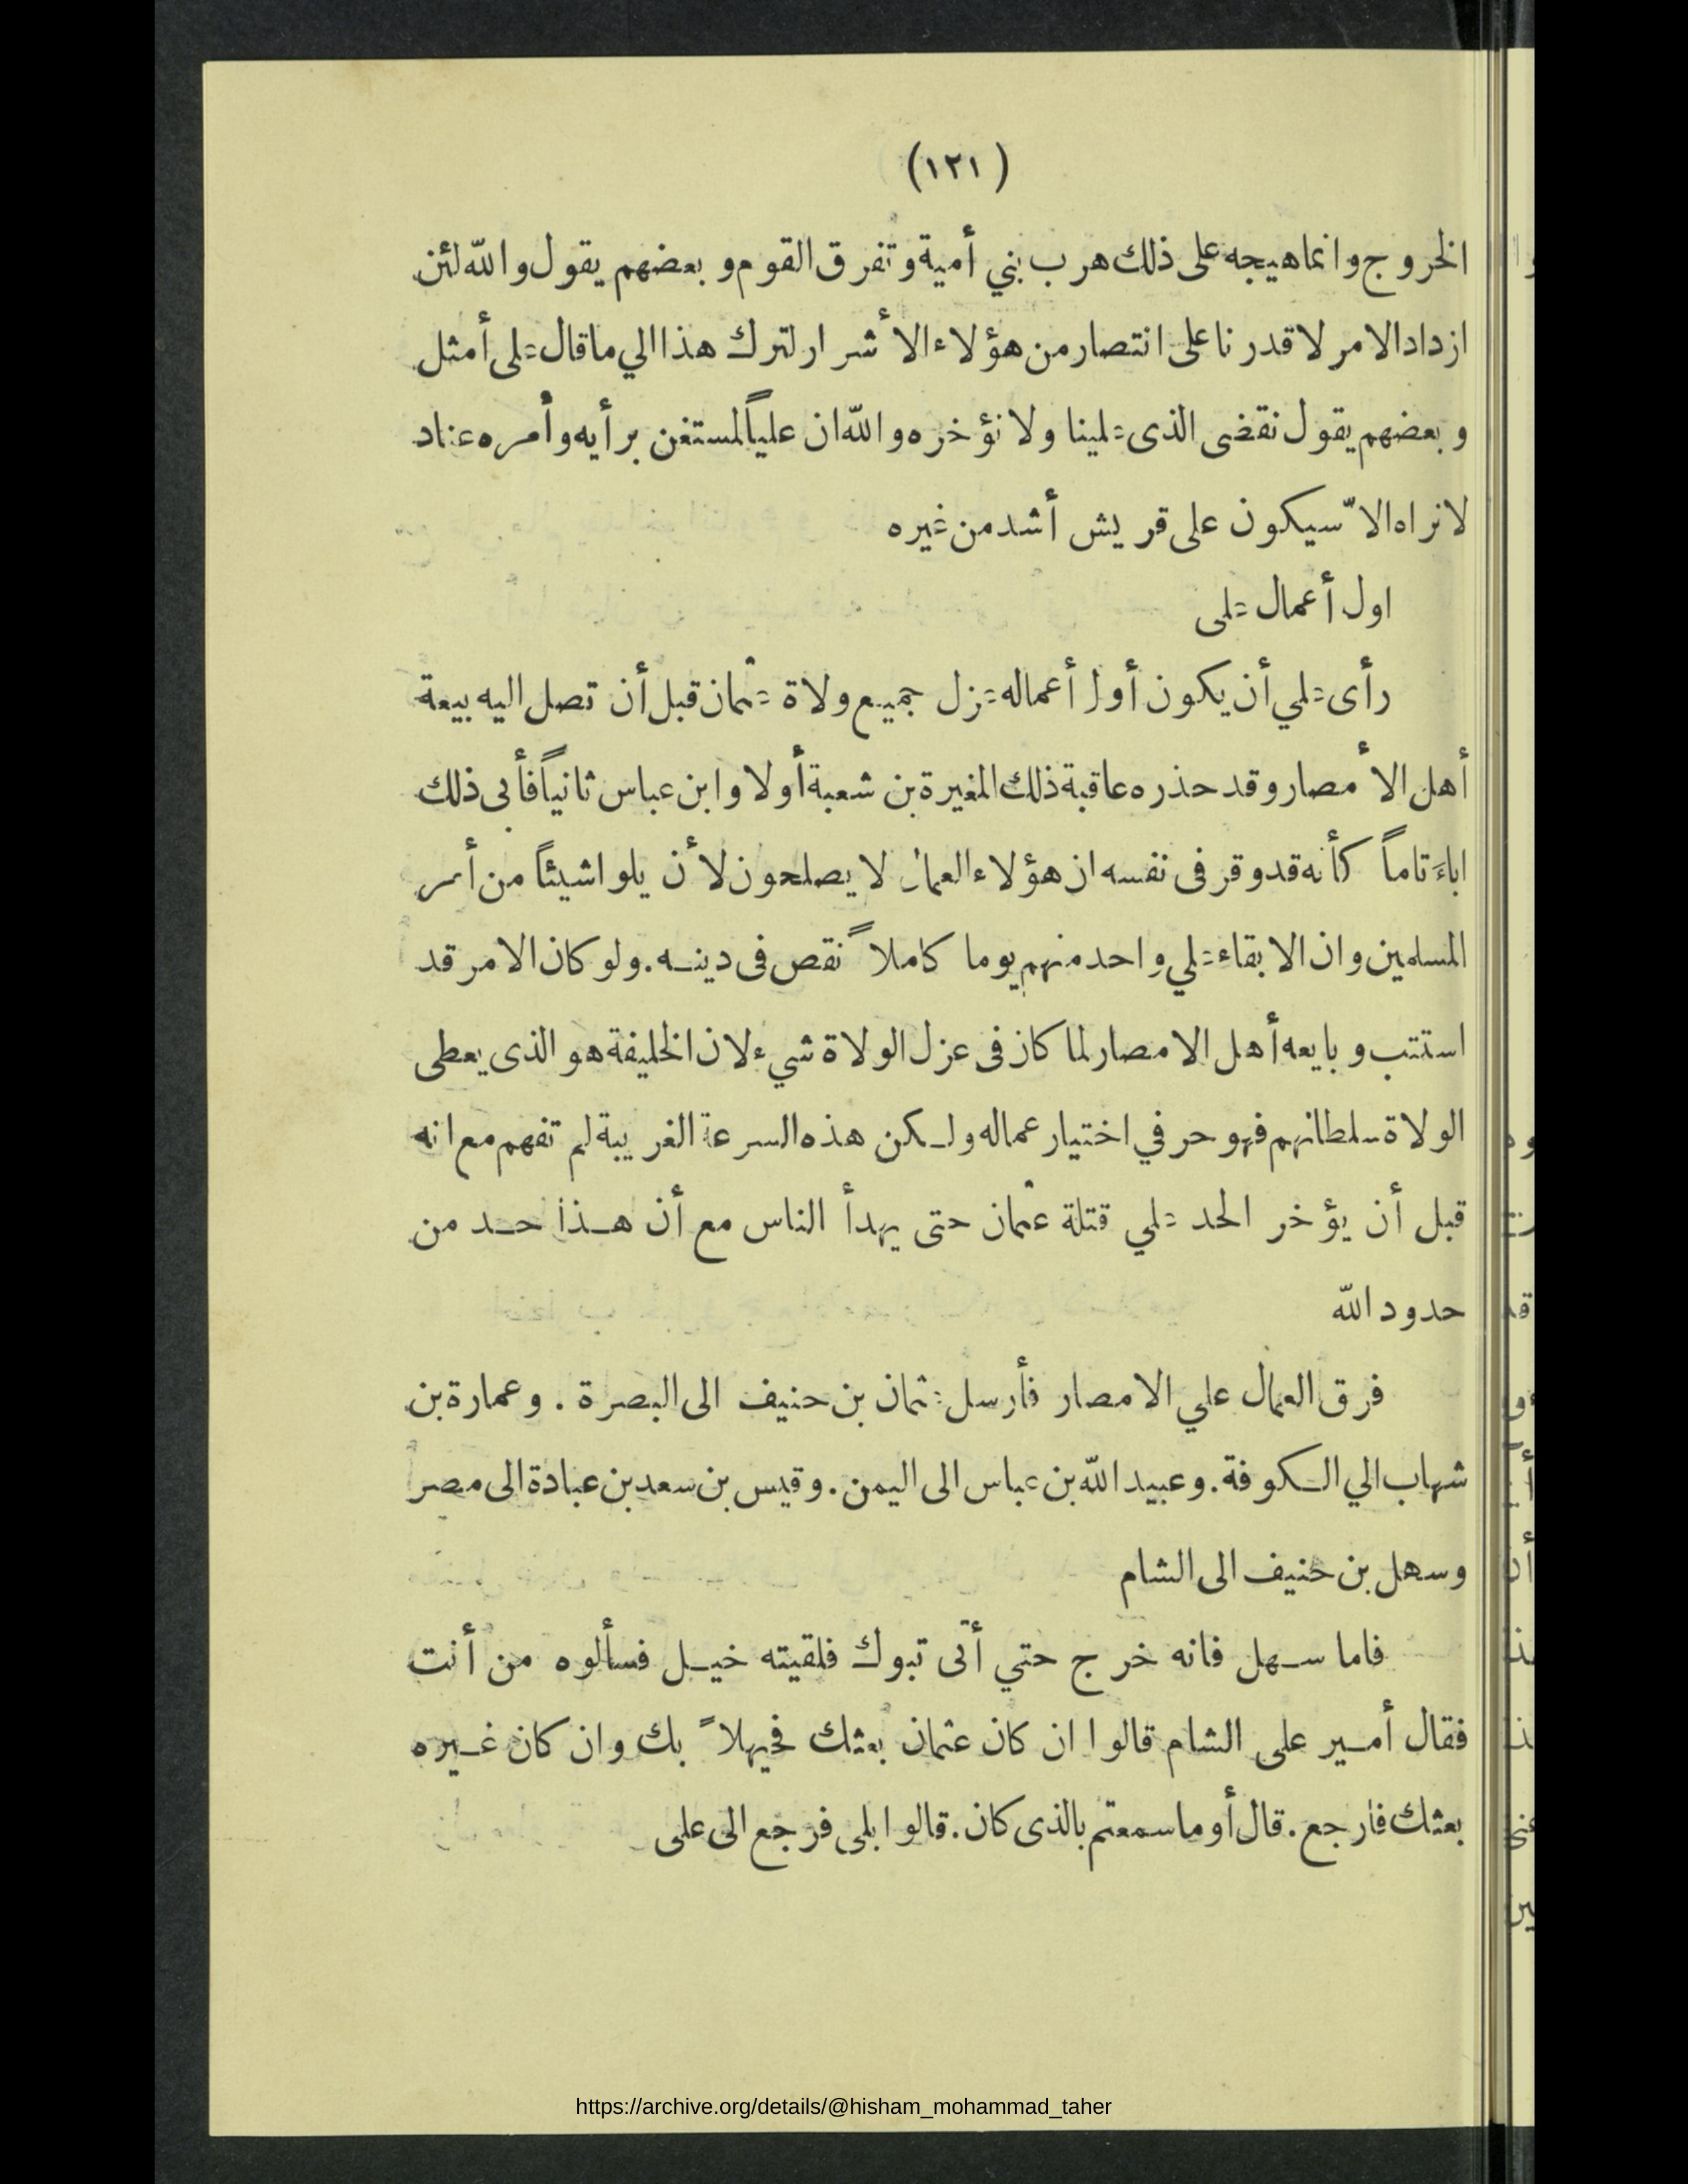 (١٢١)
الخروج وانما هيجه على ذلك هرب بني أمية وتفرق القوم وبعضهم يقول والله لئن
ازداد الامر لا قدرنا على انتصار من هؤلاء الأشرار لترك هذا الي ما قال على أمثل
وبعضهم يقول نقضى الذى علينا ولا نؤخره والله ان علياً لمستغن برأيه وأمره عناد
لا نراه الاّ سيكون على قريش أشد من غيره
اول أعمال على
رأى علي أن يكون أول أعماله عزل جميع ولاة عثمان قبل أن تصل اليه بيعة
أهل الأمصار وقد حذره عاقبة ذلك المغيرة بن شعبة أولا وابن عباس ثانياً فأبى ذلك
اباءً تاماً كأنه قد وقر فى نفسه ان هؤلاء العمال لا يصلحون لأن يلوا شيئاً من أمر
المسلمين وان الابقاء علي واحد منهم يوما كاملاً نقص فى دينه. ولو كان الامر قد
استتب وبايعه أهل الامصار لما كان فى عزل الولاة شيء لان الخليفة هو الذى يعطى
الولاة سلطانهم فهو حر في اختيار عماله ولكن هذه السرعة الغريبة لم تفهم مع انه
قبل أن يؤخر الحد علي قتلة عثمان حتى يهدأ الناس مع أن هذا حد من
حدود الله
فرق العمال علي الامصار فأرسل عثمان بن حنيف الى البصرة. وعمارة بن
شهاب الي الكوفة. وعبيد الله بن عباس الى اليمن. وقيس بن سعد بن عبادة الى مصر
وسهل بن حنيف الى الشام
فاما سهل فانه خرج حتي أتى تبوك فلقيته خيل فسألوه من أنت
فقال أمير على الشام قالوا ان كان عثمان بعثك فحيهلاً بك وان كان غيره
بعثك فارجع. قال أو ما سمعتم بالذى كان. قالوا بلى فرجع الى على
https://archive.org/details/@hisham_mohammad_taher